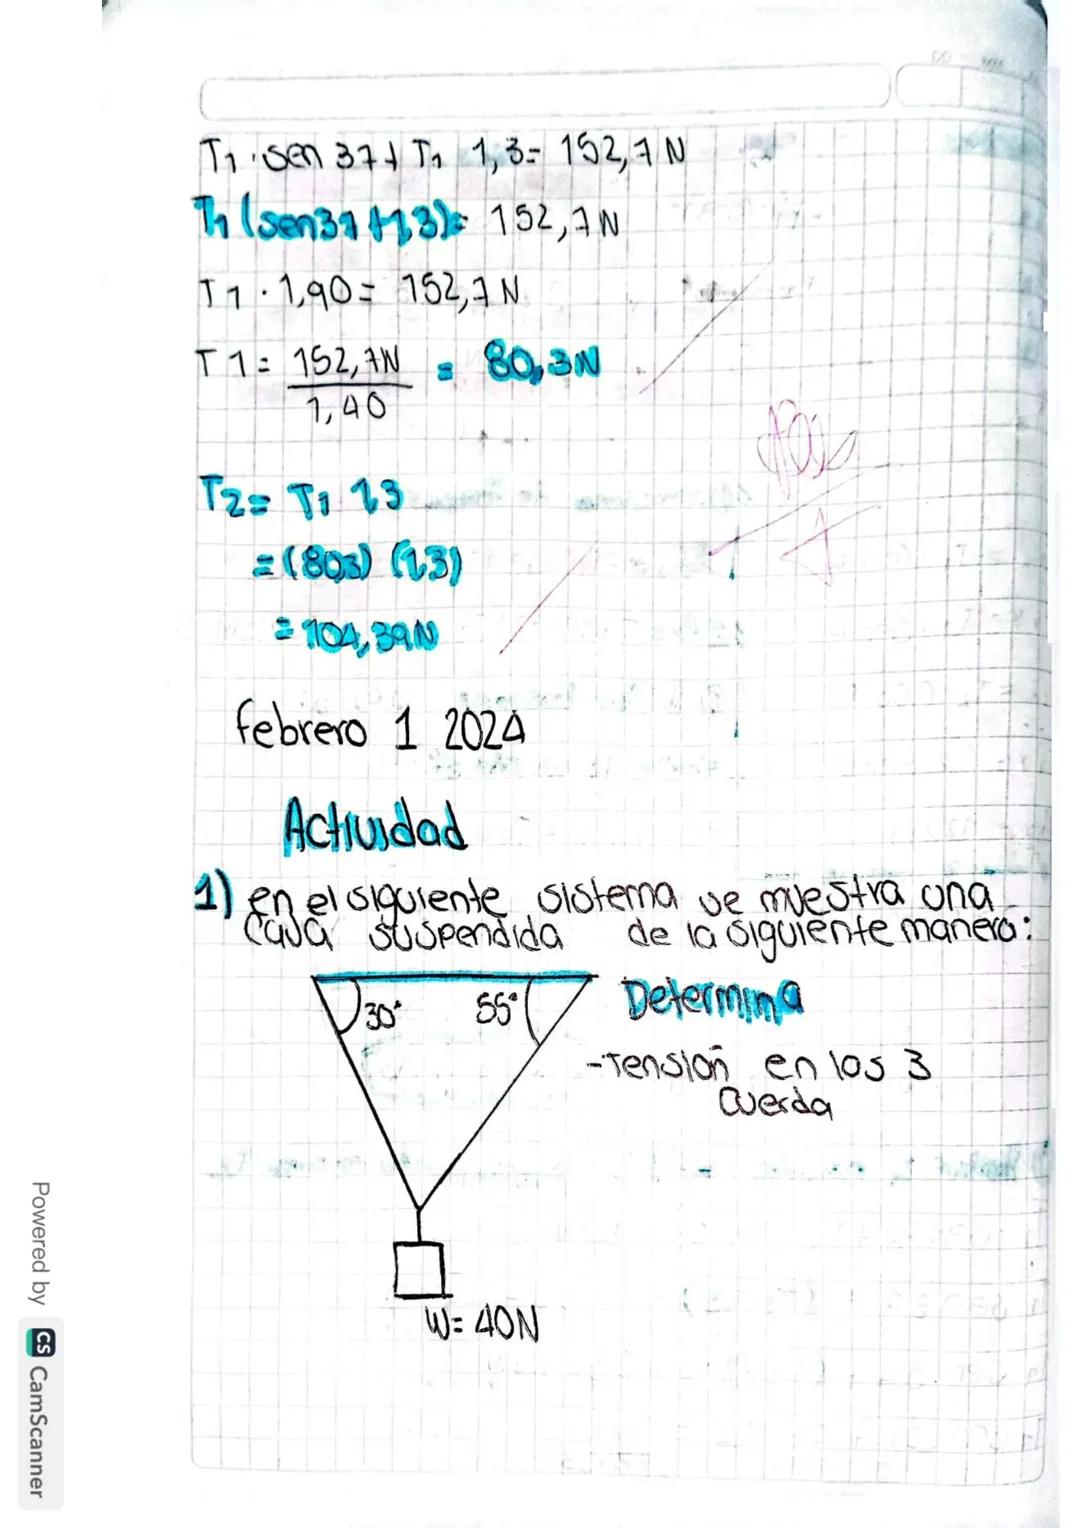 T1 · sen 37 + T1 1,3 = 152,7 N
T1 (sen37 + 1,3) = 152,7 N
T1 · 1,90 = 152,7 N
T1 = 152,7N = 80,3N
1,90
T2 = T1 1,3
= (80,3) (1,3)
= 104,39N
febrero 1 2024
Actividad
1) en el siguiente sistema se muestra una
caja suspendida de la siguiente manera:
30° 55° Determina
-Tensión en los 3
cuerda
W= 40N
Powered by CS CamScanner